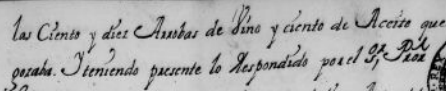 las Ciento y diez Arrobas de Vino y ciento de Aceite que
gozaba. Y teniendo presente lo Respondido por el